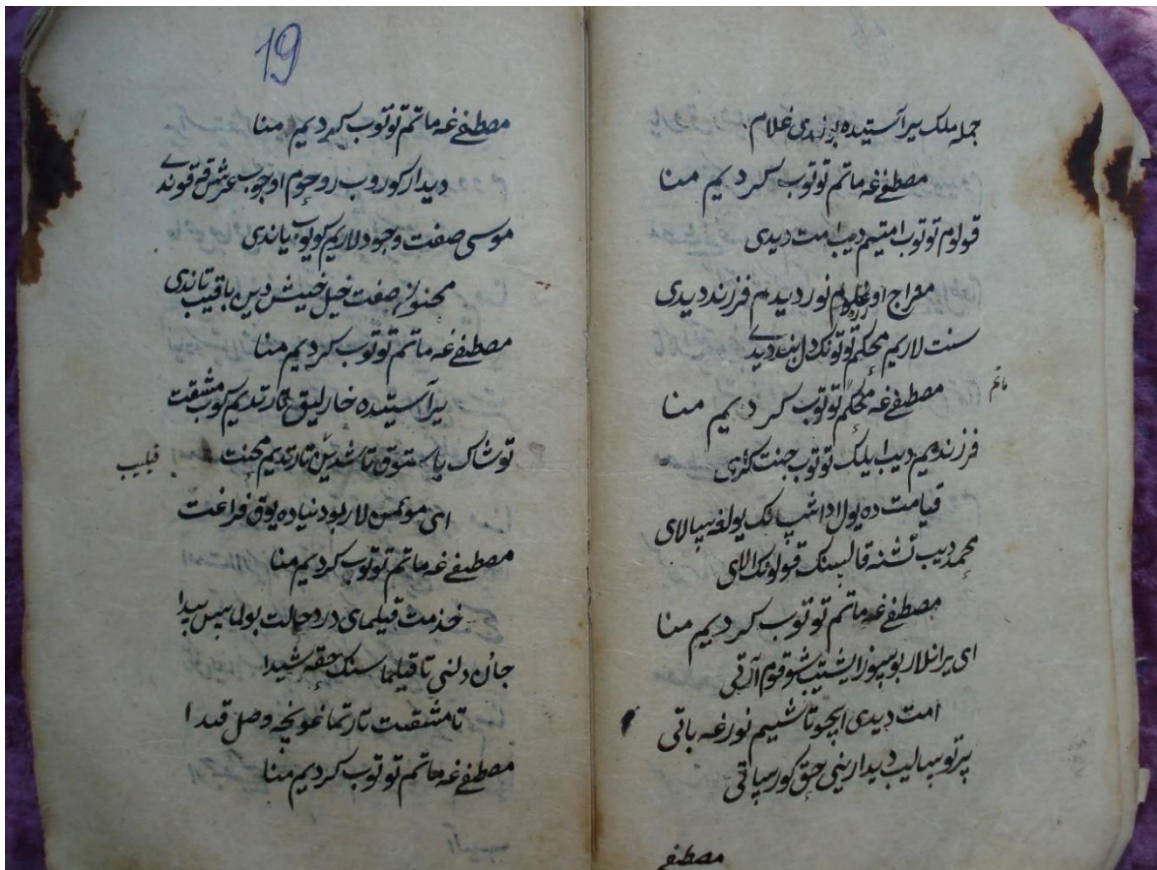 جمله ملک یر آستیده بزندی غلام
مصطفےٰ غه ماتم توتوب کردیم منا
قولوم توتوب امتیم دیب امت دیدی
معراج اوغلام نور دیدم فرزند دیدی
سنت لاریم محکم توتونک دلبند دیدی
مصطفےٰ غه محکم توتوب کردیم منا
ماتم
فرزندیم دیب ایلک توتوب جنت کردی
قیامت ده یول اداشپانک یولغه سالای
محمد دیب تشنه قالسنک قولونک الای
مصطفےٰ غه ماتم توتوب کردیم منا
ای یرانلار بو سوز ایشتیب شوقوم آرتی
امت دیدی ایچو تاشیم نورغه باتی
پرتو سالیب دیدارینی حق کورساتی
مصطفے
19
مصطفےٰ غه ماتم توتوب کردیم منا
دیدار کوروب روحوم اوچوب عرش قه قوندی
موسی صفت وجودلاریم کویوب یاندی
مجنون صفت خیل خیش دین باقیب تاندی
مصطفےٰ غه ماتم توتوب کردیم منا
یر آستیده خارلیق تارتدیم کوب مشقت
توشاک یاستوق تاشدین تارتدیم محنت
قیلیب
ای مومن لار بو دنیاده یوق فراغت
مصطفےٰ غه ماتم توتوب کردیم منا
خذمت قیلمای درد حالت بولماس پیدا
جان دلنی تا قیلماسنک حقه شیدا
تا مشقت تارتماغونچه وصل قیدا
مصطفےٰ غه ماتم توتوب کردیم منا